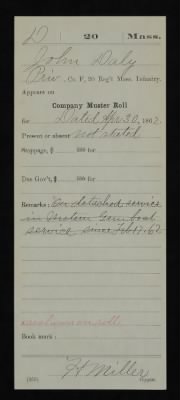 D 20 Mass.
John Daly
Priv., Co. F, 20 Reg't Mass. Infantry.
Appears on
Company Muster Roll
for Dated Apr 30, 1862.
Present or absent Not stated
Stoppage, $ 100 for
Due Gov't, $ 100 for
Remarks: On detached service
in Western Gun boat
service since Feb 17, 62
on roll.
Book mark:
H Miller
(358) Copyist.